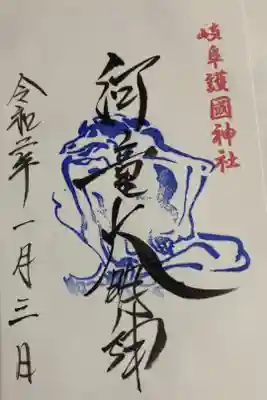 岐阜護國神社
河童大明神
令和二年一月三日